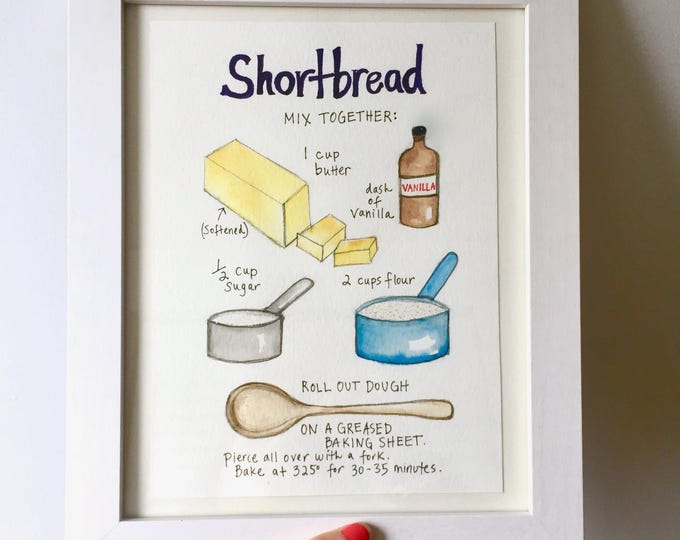 Shortbread
MIX TOGETHER:
1 cup
butter
dash
of
Vanilla
VANILLA
(softened)
1/2 cup
sugar
2 cups flour
ROLL OUT DOUGH
ON A GREASED
BAKING SHEET.
Pierce all over with a fork.
Bake at 325° for 30-35 minutes.